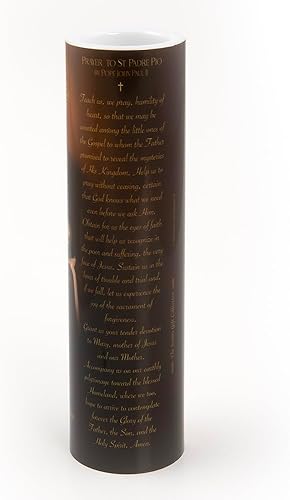 PRAYER TO ST PADRE PIO
BY POPE JOHN PAUL II
Teach us, we pray, humility of
heart, so that we may be
counted among the little ones of
the Gospel to whom the Father
promised to reveal the mysteries
of His Kingdom. Help us to
pray without ceasing, certain
that God knows what we need
even before we ask Him.
Obtain for us the eyes of faith
that will help us recognize in
the poor and suffering, the very
face of Jesus. Sustain us in the
hour of trouble and trial and,
if we fall, let us experience the
joy of the sacrament of
forgiveness.
Grant us your tender devotion
to Mary, mother of Jesus
and our Mother.
Accompany us on our earthly
pilgrimage toward the blessed
Homeland, where we too,
hope to arrive to contemplate
forever the Glory of the
Father, the Son, and the
Holy Spirit, Amen.